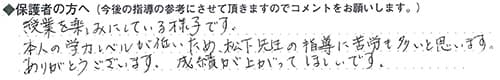 ◆保護者の方へ（今後の指導の参考にさせて頂きますのでコメントをお願いします。）
授業を楽しみにしている様子です。
本人の学力レベルが低いため、松下先生の指導に苦労も多いと思います。
ありがとうございます。成績が上がってほしいです。